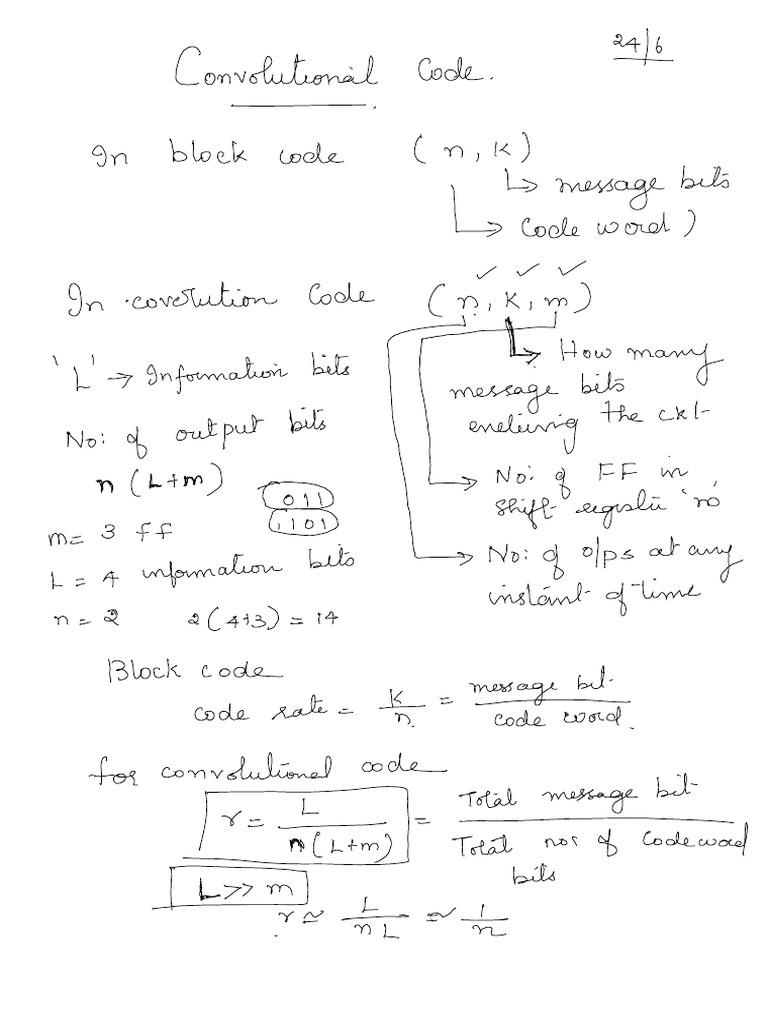 24/6
Convolutional Code.
In block code (n, k)
↳ message bits
↳ code word)
In covolution Code (n, k, m)
✓ ✓ ✓
'L' → Information bits
↳ How many
message bits
entering the ckt
No: of output bits
n (L+m)
→ No: of FF in
shift register
011
1101
m = 3 ff
→ No: of o/ps at any
instant of time
L = 4 information bits
n = 2 2(4+3) = 14
Block code
code rate = k/n = message bit / code word.
for convolutional code
r = L / n(L+m) = Total message bit / Total no: of codeword
bits
L >> m
r ≃ L / nL ≃ 1/n